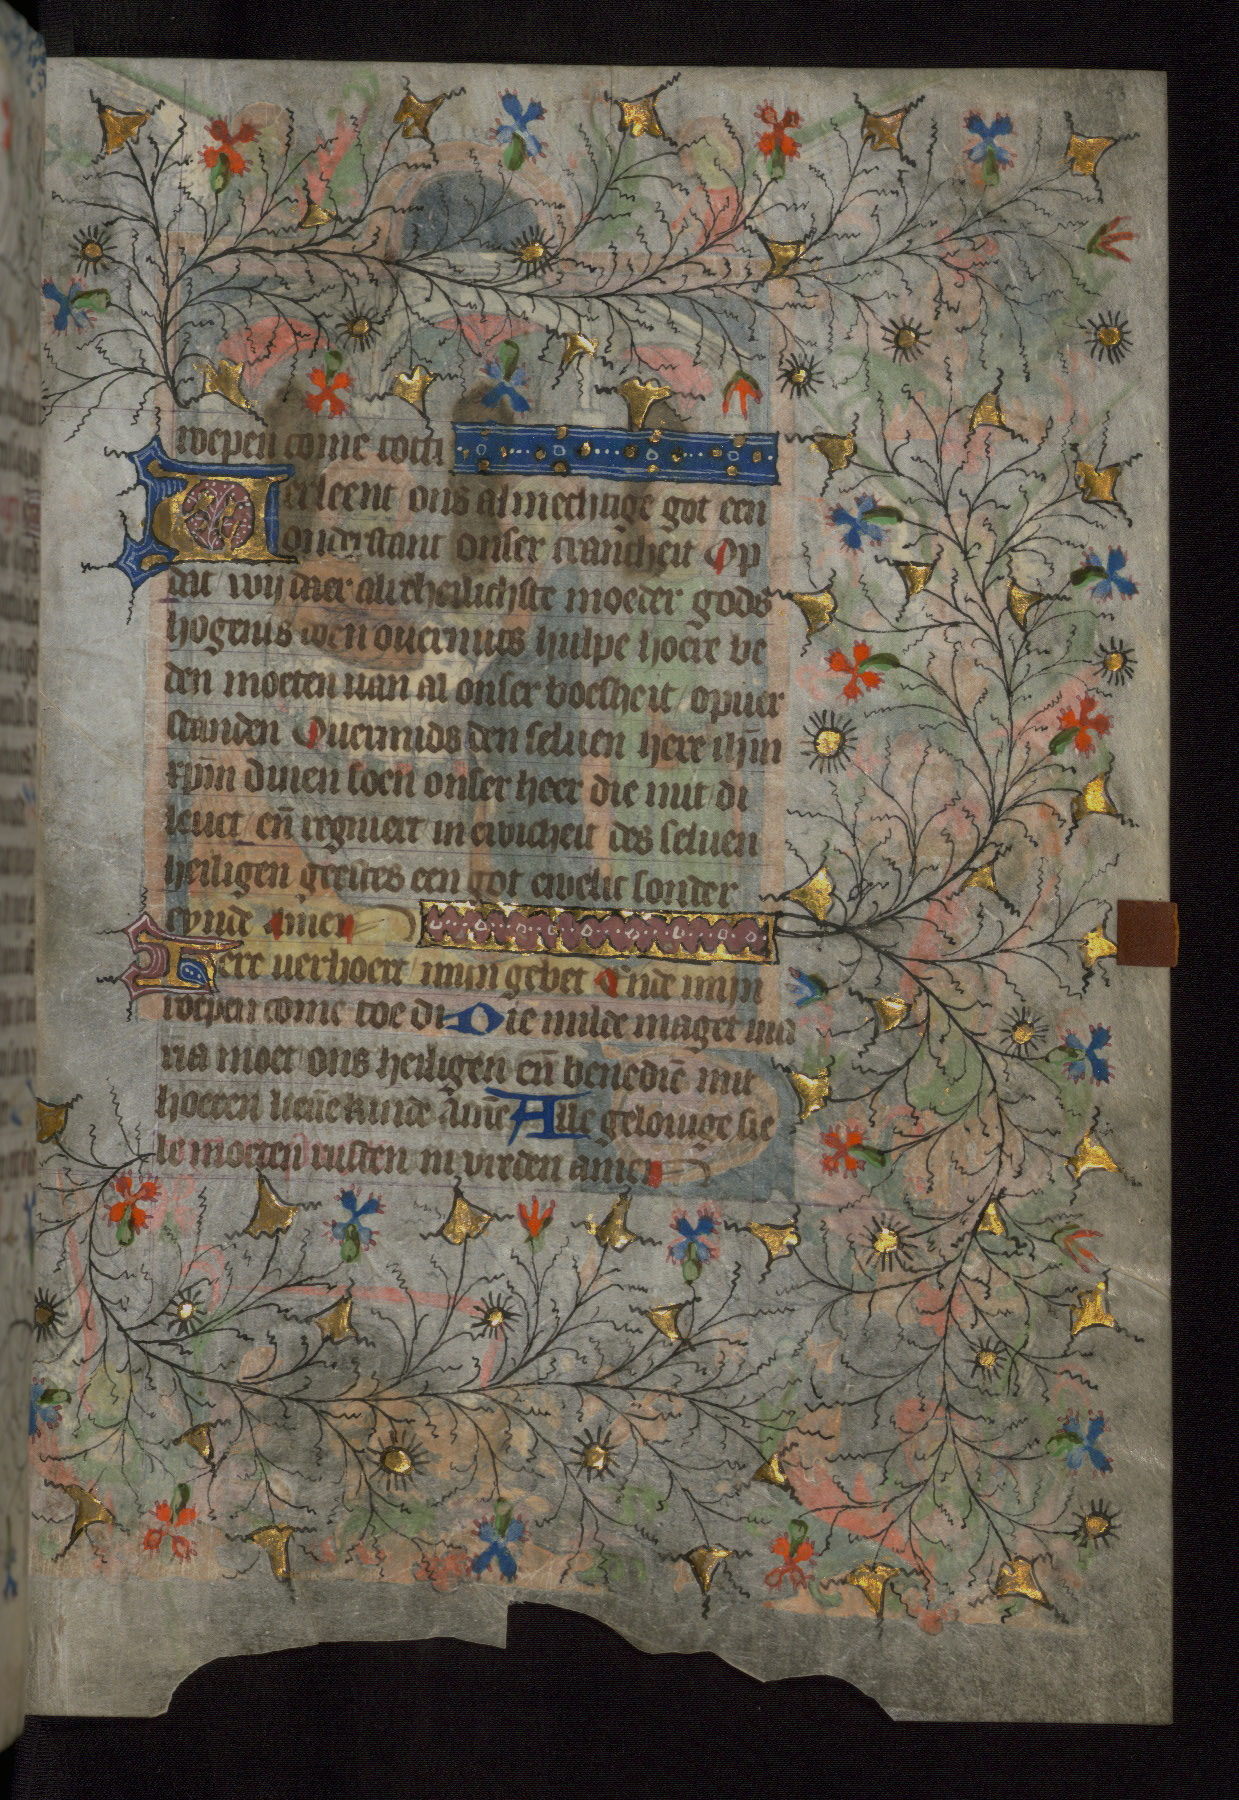 roepen come totti
Verleent ons almechtige got een
onderstant onser cranch̄eit Op
dat wij daer alreheilichste moeder gods
hogetijs doen ouermits hulpe hoere be
den moeten uan al onser boesheit opuer
standen Ouermids den seluen here ihm̄
xpm̄ dinen soen onser heer die mit di
leuet en̄ regniert in ewicheit des seluen
heiligen geestes een got ewelic sonder
eynde Amen
Here uerhoert mijn gebet Ende mijn
roepen come toe di Die milde maget ma
ria moet ons heiligen en̄ benedie͞ mit
hoeren lieue͞ kinde Ame͞ Alle gelouige sie
le moeten rusten in vreden amen